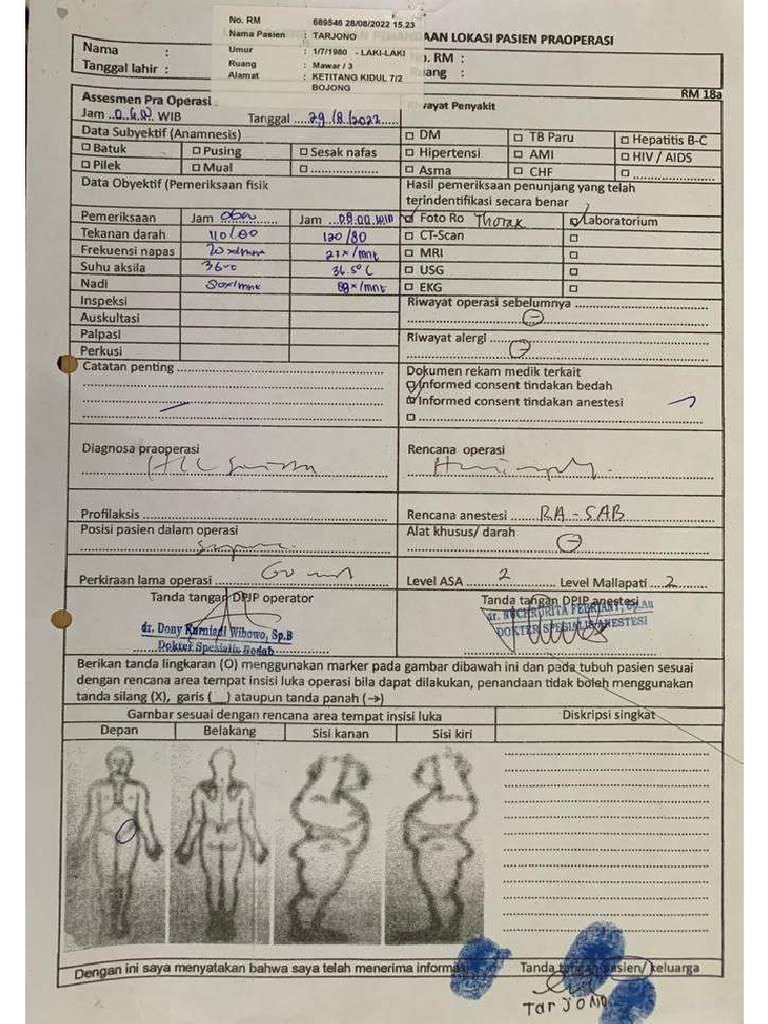 No. RM 689546 28/08/2022 15.23
Nama Pasien : TARJONO
Umur : 1/7/1980 - LAKI-LAKI
Ruang : Mawar / 3
Alamat : KETITANG KIDUL 7/2
BOJONG
LOKASI PASIEN PRAOPERASI
Nama :
Tanggal lahir :
. RM :
uang :
RM 18a
Assesmen Pra Operasi
Jam WIB Tanggal 29/8/2022
wayat Penyakit
Data Subyektif (Anamnesis)
Batuk Pusing Sesak nafas
Pilek Mual
DM TB Paru Hepatitis B-C
Hipertensi AMI HIV / AIDS
Asma CHF
Data Obyektif (Pemeriksaan fisik
Hasil pemeriksaan penunjang yang telah
terindentifikasi secara benar
Pemeriksaan Jam Jam 08.00 win
Tekanan darah 110/80 120/80
Frekuensi napas 20x/mnt 21x/mnt
Suhu aksila 36°C 36.5°C
Nadi 80x/mnt 89x/mnt
Inspeksi
Auskultasi
Palpasi
Perkusi
Foto Ro Thorax Laboratorium
CT-Scan
MRI
USG
EKG
Riwayat operasi sebelumnya
Riwayat alergi
Catatan penting
Dokumen rekam medik terkait
Informed consent tindakan bedah
Informed consent tindakan anestesi
Diagnosa praoperasi
Rencana operasi
Profilaksis
Rencana anestesi RA-SAB
Posisi pasien dalam operasi
Alat khusus/ darah
Perkiraan lama operasi
Level ASA 2 Level Mallapati 2
Tanda tangan DPJP operator
Tanda tangan DPJP anestesi
dr. Dony Kurniadi Wibowo, Sp.B
Dokter Spesialis Bedah
DOKTER SPESIALIS ANESTESI
Berikan tanda lingkaran (O) menggunakan marker pada gambar dibawah ini dan pada tubuh pasien sesuai
dengan rencana area tempat insisi luka operasi bila dapat dilakukan, penandaan tidak boleh menggunakan
tanda silang (X), garis (__) ataupun tanda panah (→)
Gambar sesuai dengan rencana area tempat insisi luka
Diskripsi singkat
Depan Belakang Sisi kanan Sisi kiri
Dengan ini saya menyatakan bahwa saya telah menerima informasi
Tanda tangan pasien/ keluarga
TarJONO